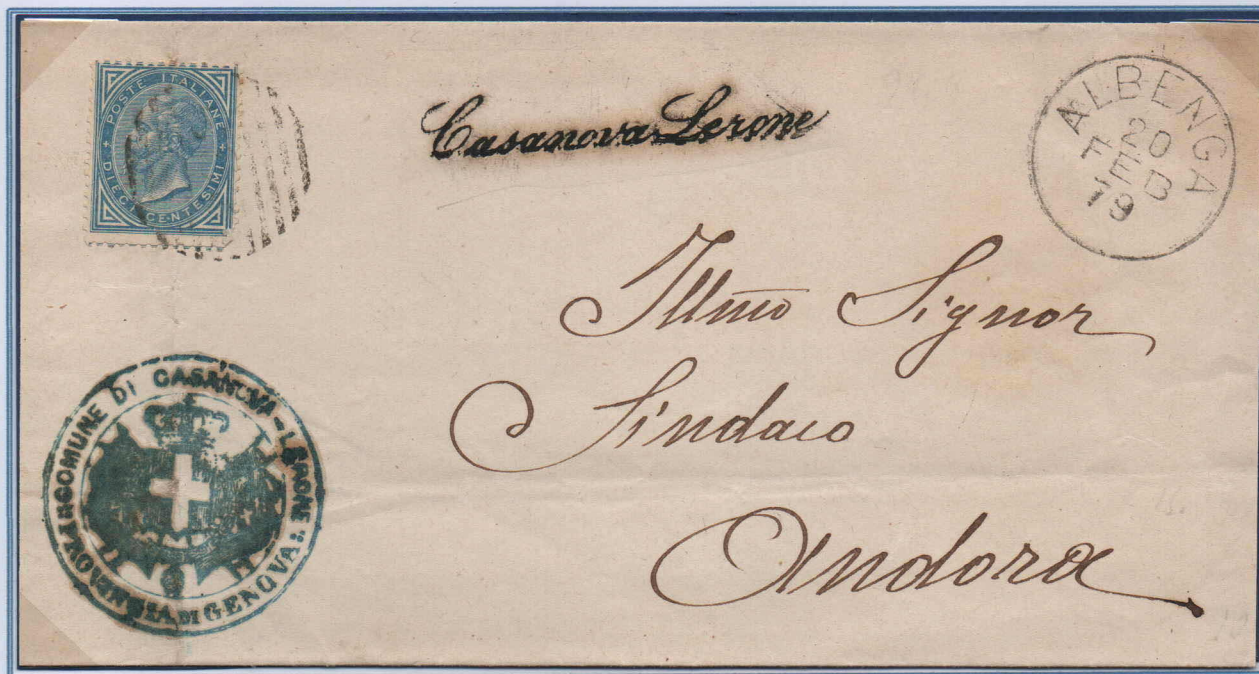 POSTE ITALIANE
DIECI CENTESIMI
Casanova Lerone
ALBENGA
20
FEB
79
Illmo Signor
Sindaco
Andora
COMUNE DI CASANOVA-LERONE
PROVINCIA DI GENOVA